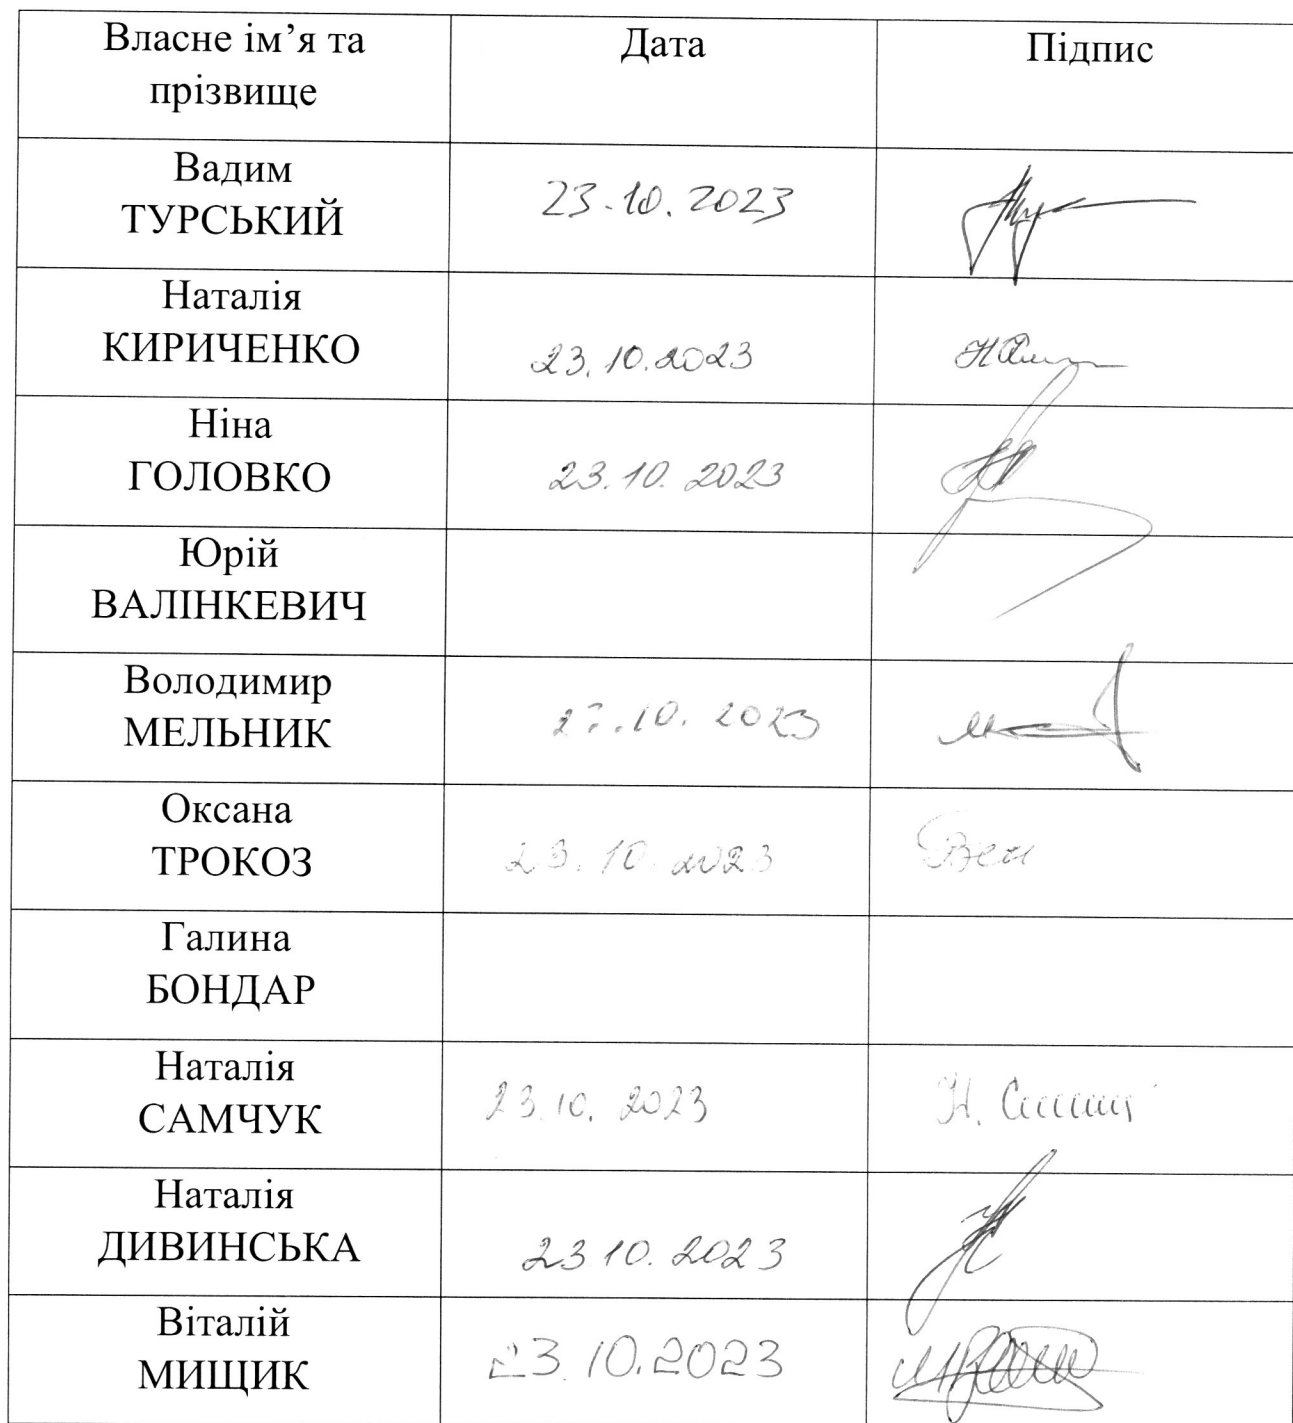 Власне ім’я та Дата Підпис
прізвище
Вадим
ТУРСЬКИЙ 23.10.2023
Наталія
КИРИЧЕНКО 23.10.2023
Ніна
ГОЛОВКО 23.10.2023
Юрій
ВАЛІНКЕВИЧ
Володимир
МЕЛЬНИК .10.2023
Оксана
ТРОКОЗ 23.10.2023
Галина
БОНДАР
Наталія
САМЧУК 23.10.2023
Наталія
ДИВИНСЬКА 23 10.2023
Віталій
МИЩИК 23.10.2023